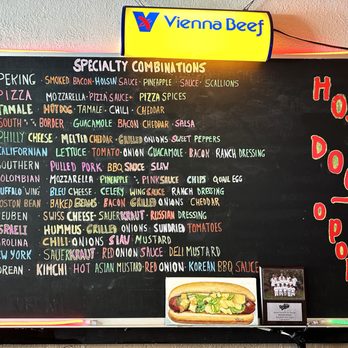 Vienna Beef
SPECIALTY COMBINATIONS
PEKING · SMOKED BACON · HOISIN SAUCE · PINEAPPLE SAUCE · SCALLIONS
PIZZA MOZZARELLA · PIZZA SAUCE · PIZZA SPICES
TAMALE · HOTDOG · TAMALE · CHILI · CHEDDAR
SOUTH BORDER GUACAMOLE BACON CHEDDAR SALSA
PHILLY CHEESE · MELTED CHEDDAR · GRILLED ONIONS SWEET PEPPERS
CALIFORNIAN LETTUCE TOMATO · ONION GUACAMOLE · BACON RANCH DRESSING
SOUTHERN PULLED PORK BBQ SAUCE SLAW
COLOMBIAN · MOZZARELLA · PINEAPPLE PINK SAUCE CHIPS QUAIL EGG
BUFFALO WING BLEU CHEESE · CELERY WING SAUCE RANCH DRESSING
BOSTON BEAN · BAKED BEANS · BACON GRILLED ONIONS CHEDDAR
REUBEN · SWISS CHEESE · SAUERKRAUT · RUSSIAN DRESSING
ISRAELI HUMMUS · GRILLED ONIONS SUNDRIED TOMATOES
CAROLINA CHILI · ONIONS SLAW MUSTARD
NEW YORK · SAUERKRAUT RED ONION SAUCE DELI MUSTARD
KOREAN · KIMCHI HOT ASIAN MUSTARD · RED ONION · KOREAN BBQ SAUCE
HOT
DOG
OPOL